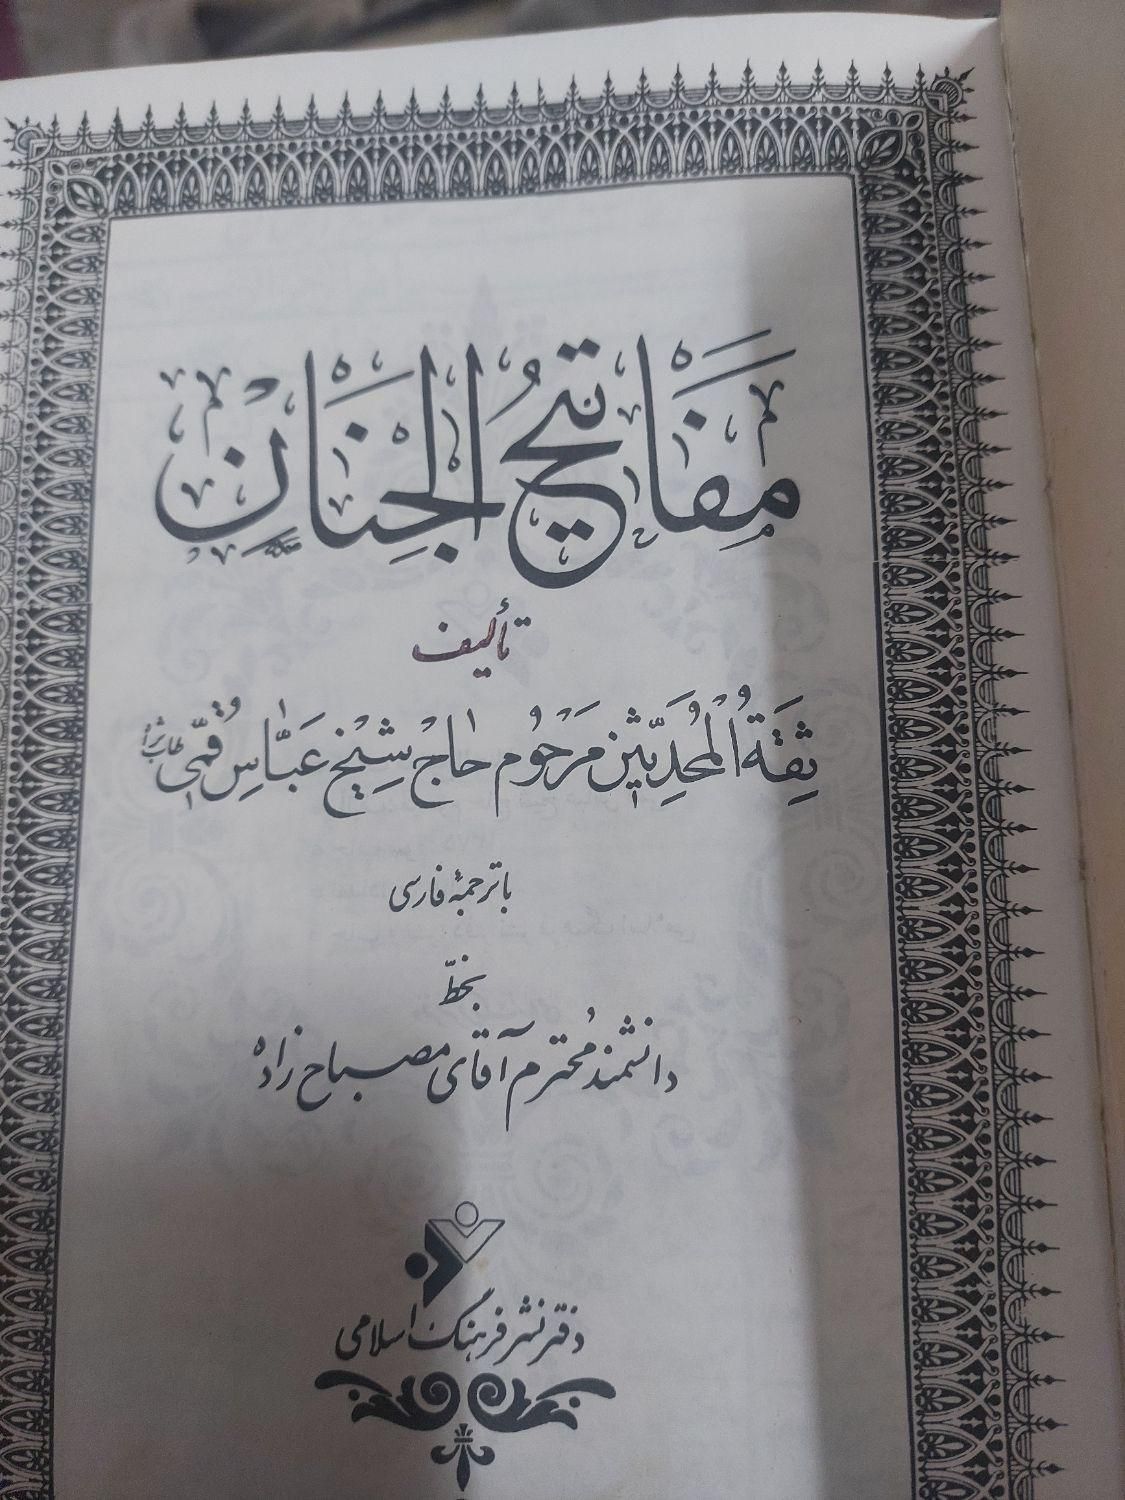 مَفَاتِيحُ الْجِنَانِ
تألیف
ثِقَةُ الْمُحَدِّثِین مَرحُوم حاج شِیْخ عَبّاسِ قُمّی طاب ثراه
با ترجمهٔ فارسی
بخطّ
دانشمند مُحترم آقای مصباح زاده
دفتر نشر فرهنگ اسلامی